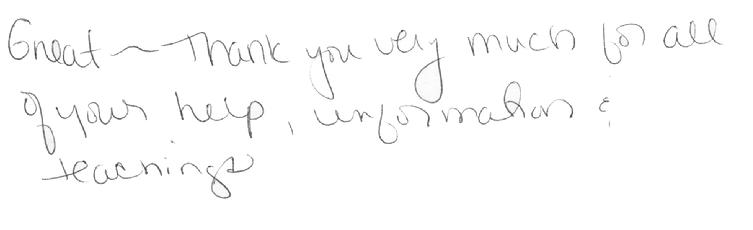 Great ~ Thank you very much for all
of your help, information &
teachings